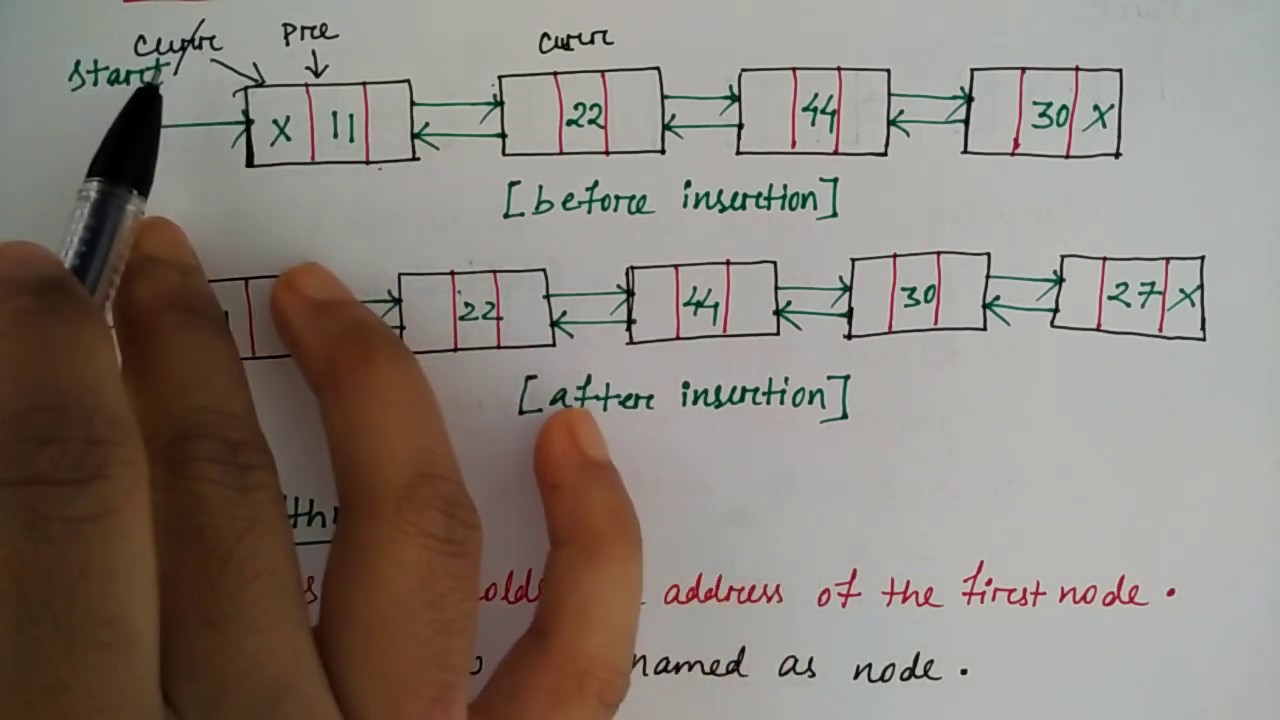 curre pre curre
start
X 11 22 44 30 X
[before insertion]
22 44 30 27 X
[after insertion]
address of the first node.
named as node.